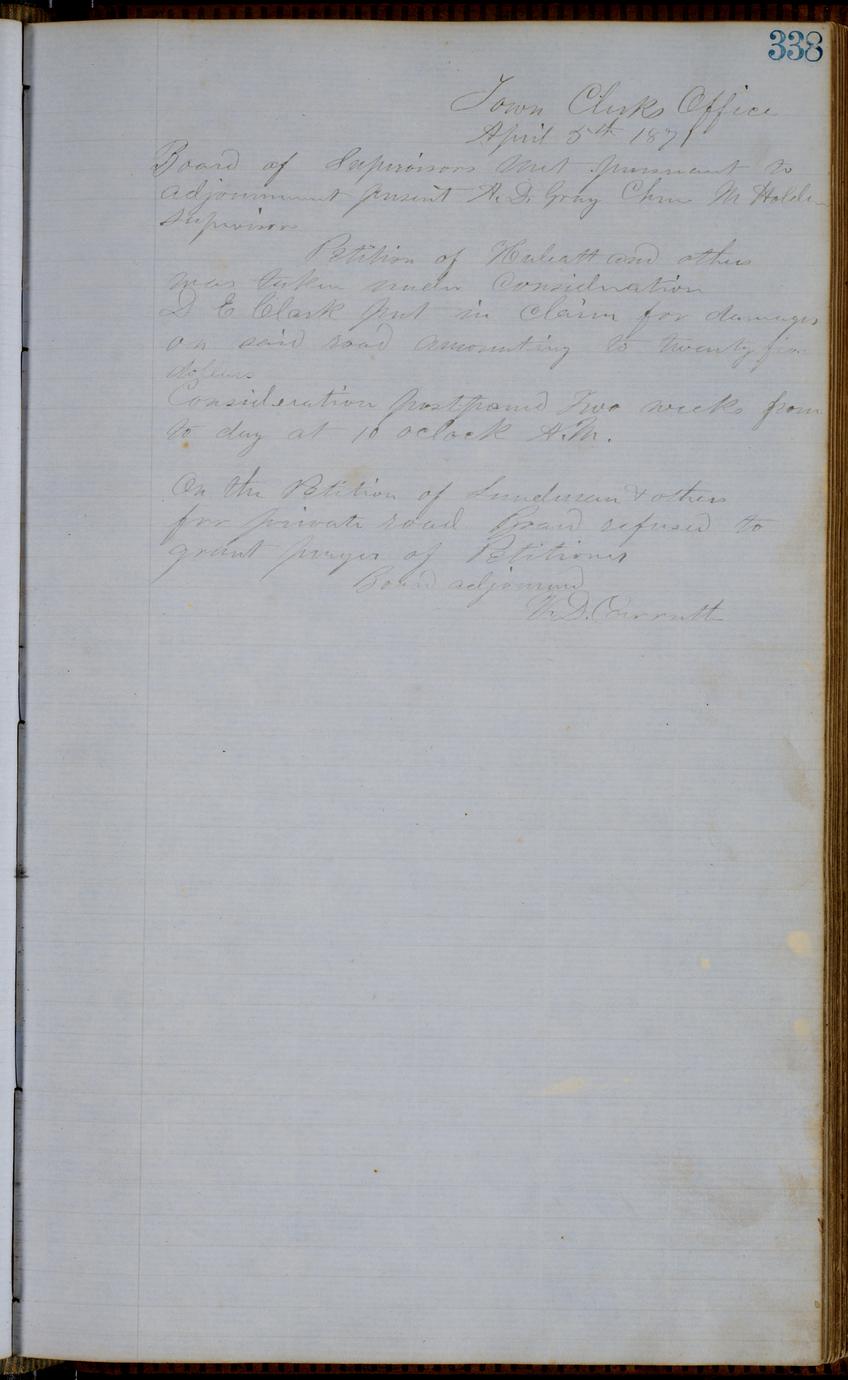 338
Town Clerks Office
April 5th 1871
Board of Supervisors met pursuant to
adjournment present A. D. Gray Chm M Holden
Supervisors
Petition of Hulcott and others
was taken under Consideration
D E Clark put in claim for damages
on said road amounting to twenty five
dollars
Consideration postponed Two weeks from
to day at 10 oclock A.M.
On the Petition of Lundeman & others
for private road Board refused to
grant prayer of Petitioners
Board adjourned
D. Currutt